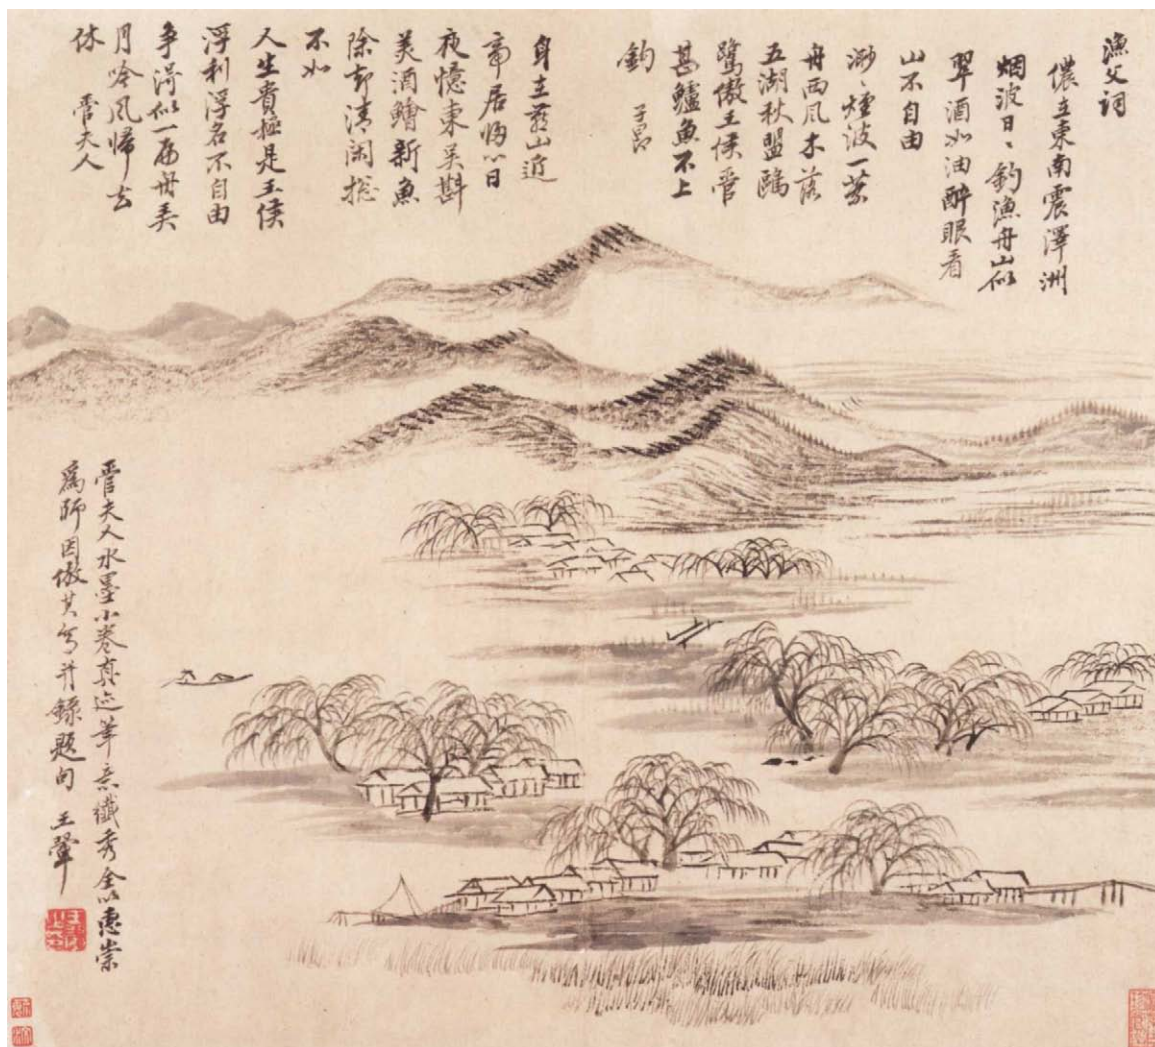 漁父詞
儂在東南震澤洲
烟波日〻釣漁舟山似
翠酒如油醉眼看
山不自由
渺〻煙波一葉
舟西風木落
五湖秋盟鷗
鷺傲王侯管
甚鱸魚不上
鈎 子昂
身在燕山近
帝居歸心日
夜憶東吳斟
美酒鱠新魚
除却清閑揔
不如
人生貴極是王侯
浮利浮名不自由
爭得似一扁舟弄
月吟風歸去
休 管夫人
管夫人水墨小卷真迹筆意纖秀全以惠崇
為師因倣其寫并錄題句 王翬